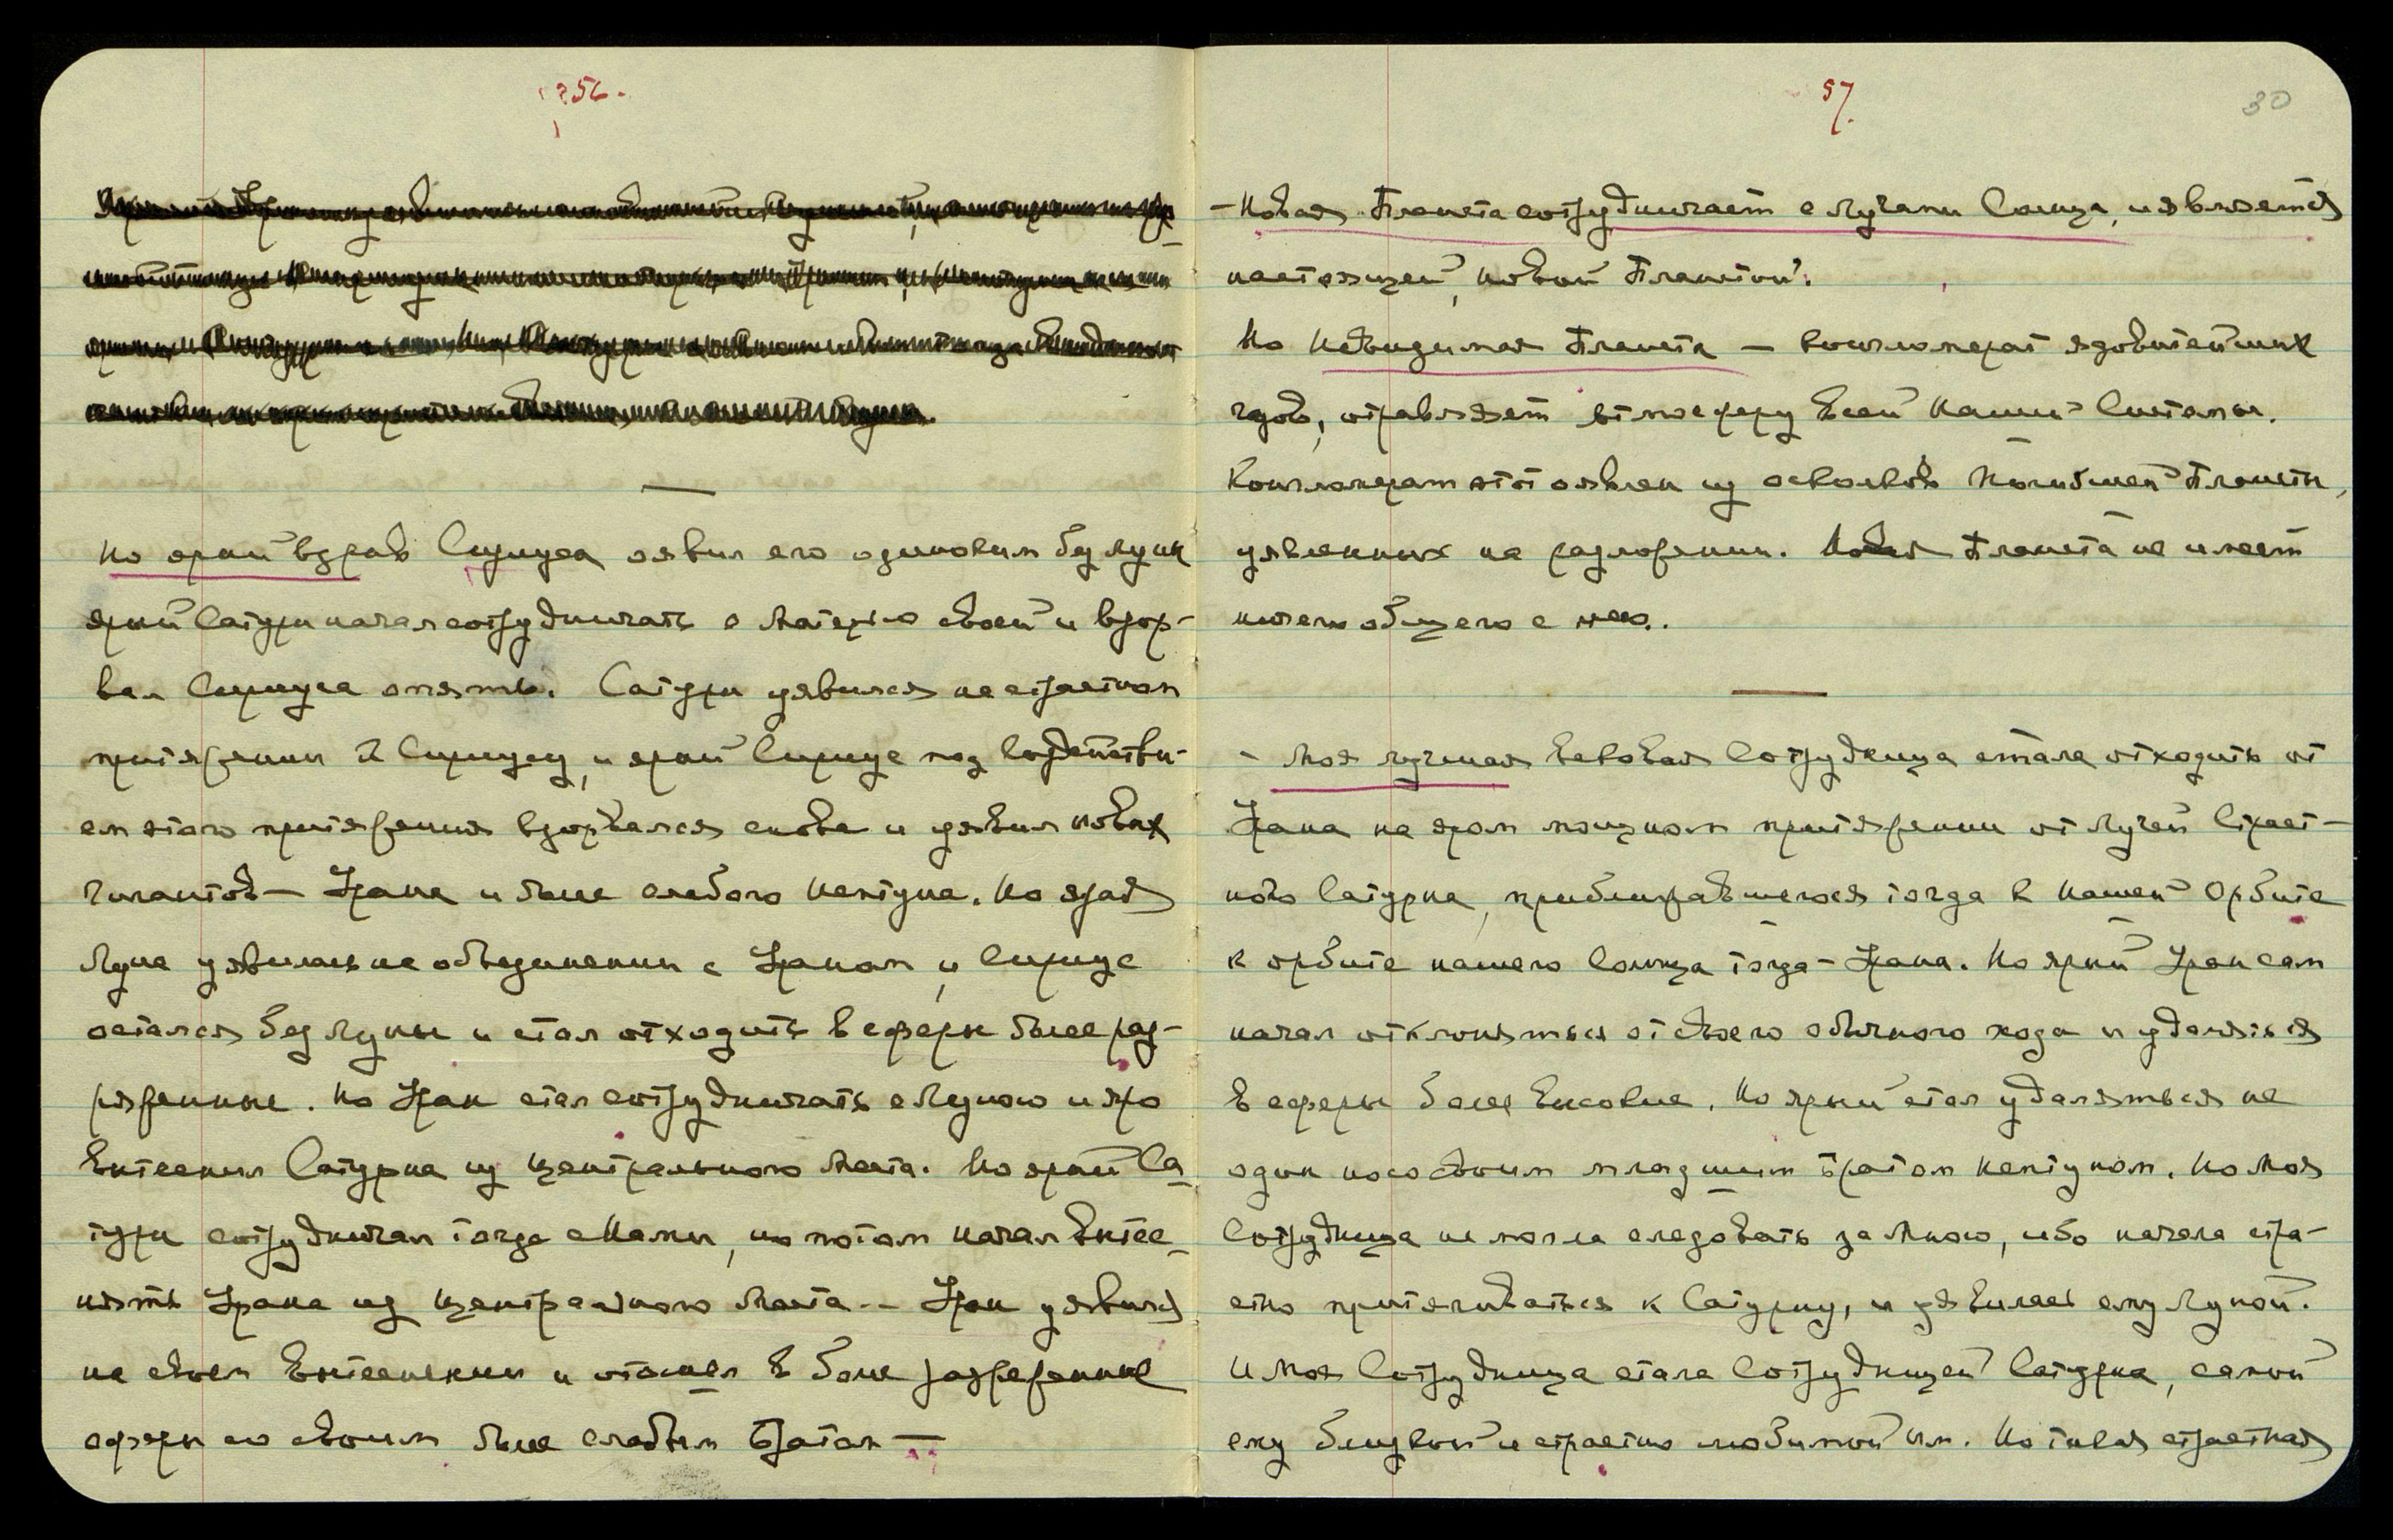 56.
Но ярый взрыв Сириуса оявил его одиноким без луны
ярый Сатурн начал сотрудничать с Матерью своей и взор-
вал Сириуса опять. Сатурн уявился на страстном
притяжении к Сириусу, и ярый Сириус под воздействи-
ем этого притяжения взорвался снова и уявил новых
гигантов — Урана и более слабого Нептуна. Но ярая
Луна уявилась на объединении с Ураном, и Сириус
остался без Луны и стал отходить в сферы более раз-
ряженные. Но Уран стал сотрудничать с Луною и яро
вытеснил Сатурна из центрального Места. Но ярый Са
турн сотрудничал тогда с Нами, но потом начал вытес-
нять Урана из центрального Места -- Уран уявился
на своем вытеснении и отошел в более разреженные
сферы со своим более слабым братом —
57.
30
- Новая Планета сотрудничает с Лучами Солнца, и является
настоящей, новой Планетой.
Но Невидимая Планета — конгломерат ядовитейших
газов, отравляет атмосферу всей Нашей Системы.
Конгломерат этот оявлен из осколков Погибшей Планеты,
уявленных на разложении. Новая Планета не имеет
ничего общего с нею.
- Моя лучшая вековая Сотрудница стала отходить от
Урана на яром мощном притяжении от Лучей Страст-
ного Сатурна, приближавшегося тогда к Нашей Орбите
к орбите нашего Солнца тогда - Урана. Но ярый Уран сам
начал отклоняться от своего обычного хода и удаляться
в сферы более высокие. Но ярый стал удаляться не
один но со своим младшим братом Нептуном. Но Моя
Сотрудница не могла следовать за Мною, ибо начала стра-
стно притягиваться к Сатурну, и уявилась ему Луной.
И Моя Сотрудница стала Сотрудницей Сатурна, самой
ему близкой и страстно любимой им. Но такая страстная